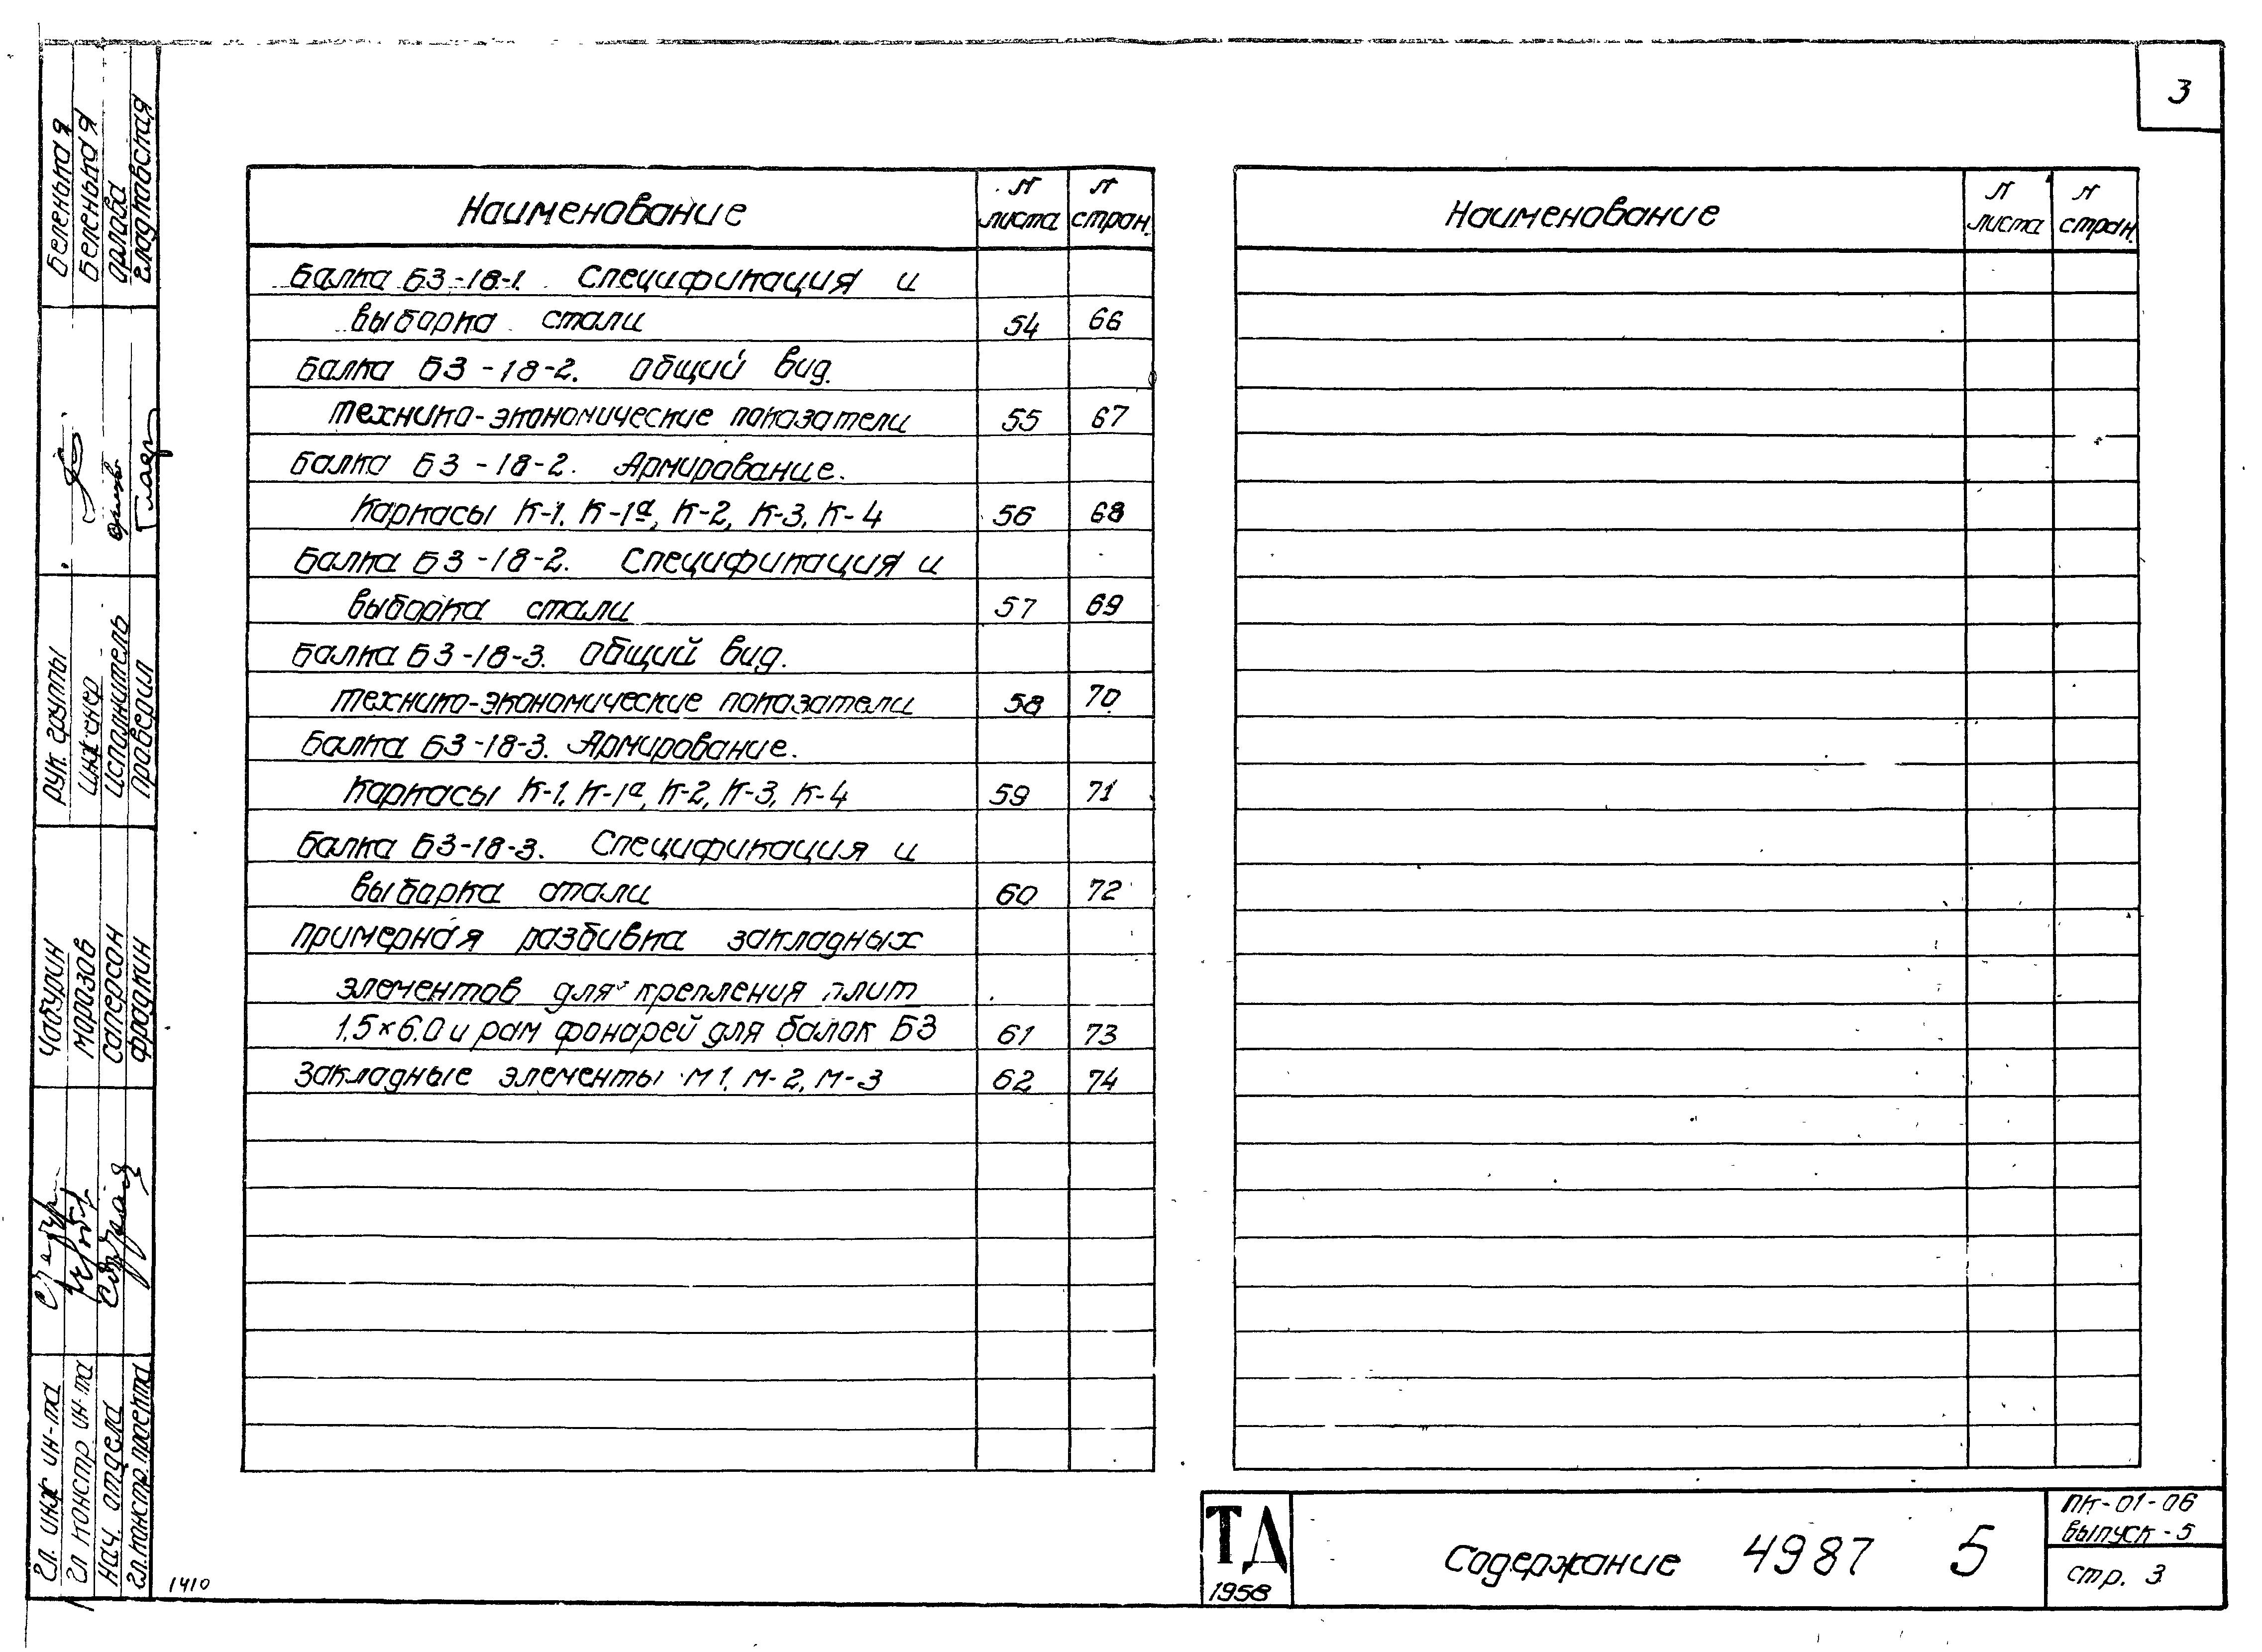 3
Наименование
N листа
N стран.
Балка БЗ-18-1. Спецификация и
выборка стали 54 66
Балка БЗ-18-2. Общий вид.
технико-экономические показатели 55 67
Балка БЗ-18-2. Армирование.
Каркасы К-1, К-1а, К-2, К-3, К-4 56 68
Балка БЗ-18-2. Спецификация и
выборка стали 57 69
Балка БЗ-18-3. Общий вид.
технико-экономические показатели 58 70
Балка БЗ-18-3. Армирование.
Каркасы К-1, К-1а, К-2, К-3, К-4 59 71
Балка БЗ-18-3. Спецификация и
выборка стали 60 72
Примерная разбивка закладных
элементов для крепления плит
1.5×6.0 и рам фонарей для балок БЗ 61 73
Закладные элементы М1, М-2, М-3 62 74
Наименование
N листа
N стран.
Гл. инж ин-та Чабурин
Гл констр ин-та Морозов
Нач. отдела Саперсон
Гл. констр. проекта Фрадкин
Рук. группы Беленькая
Инженер Беленькая
Исполнитель Орлова
Проверил Гладтовская
1410
ТД
1958
Содержание 4987 5
ПК-01-06
выпуск-5
стр. 3